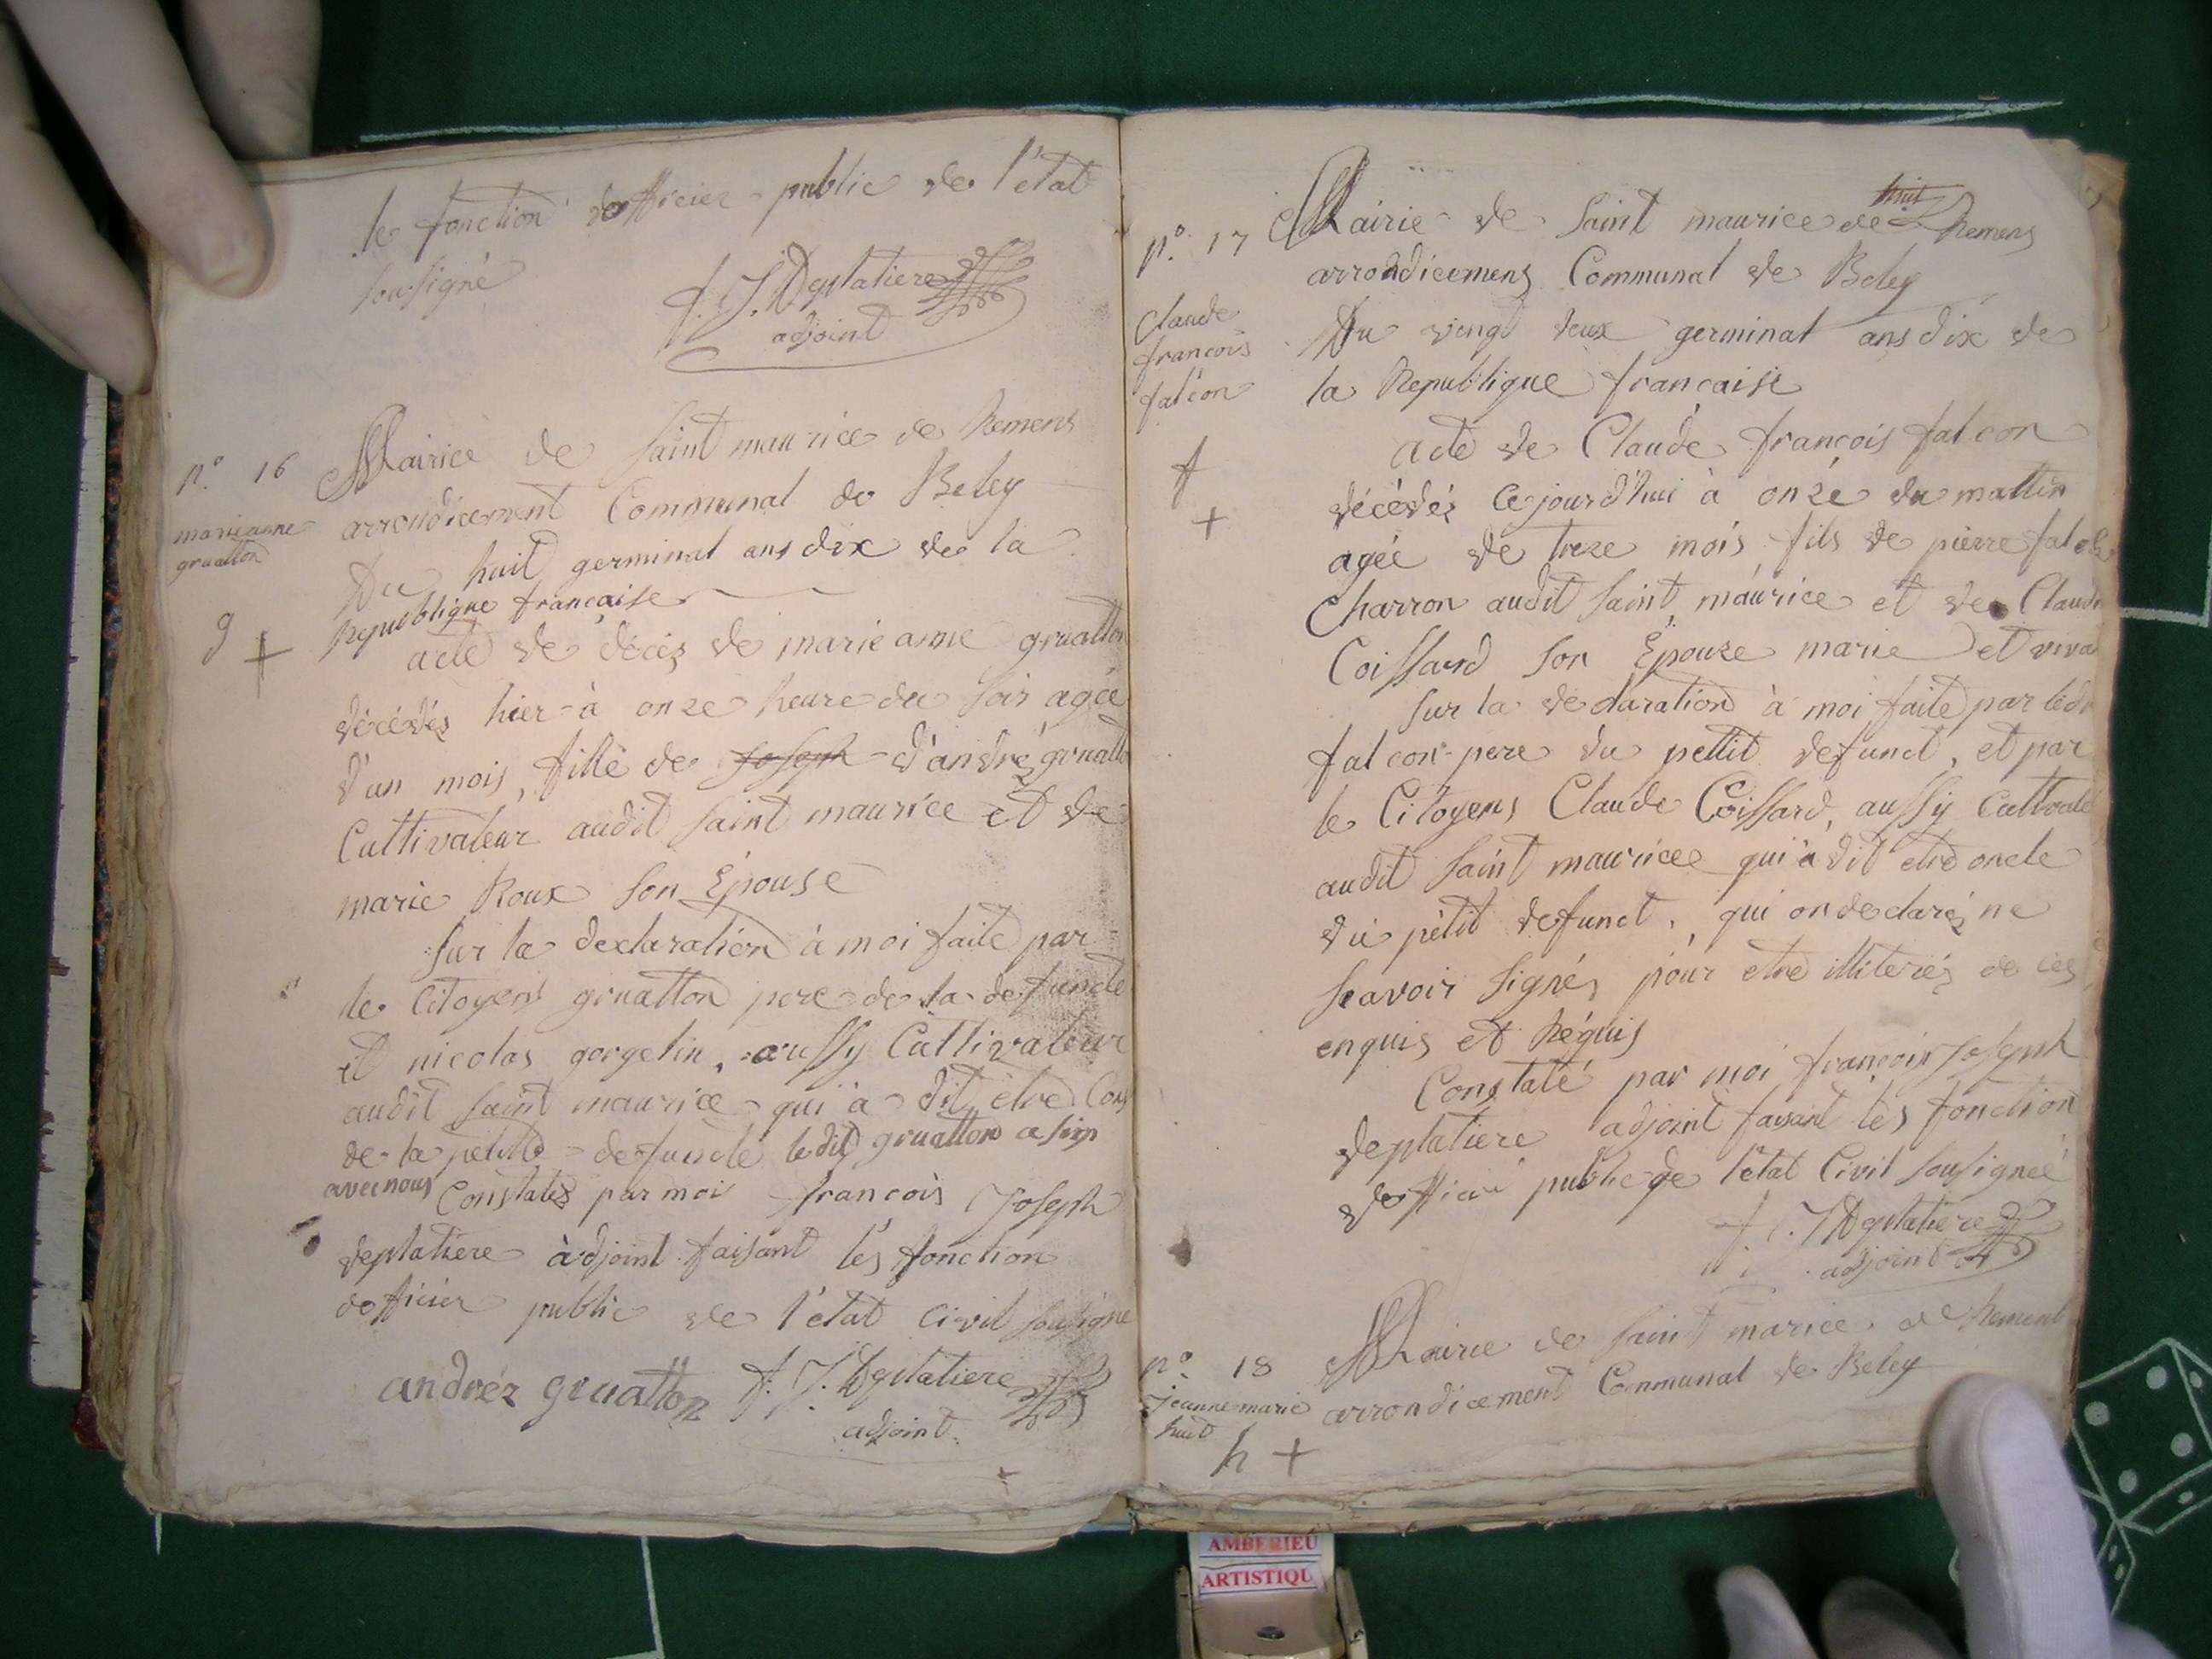 le fonction dofficier public de l'etat
sousigné
f. J. Deplatiere
adjoint
n.° 16
marieanne
gruatton
g
Mairice de saint maurice de Remens
arrondicement Communal de Beley
Du huit germinal ans dix de la
Republique francaise
acte de décès de marie anne gruatton
décédés hier à onze heure du soir agée
d'un mois, fille de Joseph d'andré gruatto
Cultivateur audit saint maurice et de
marie Roux son Epouse
sur la declaration à moi faite par
le Citoyens gruatton pere de la defuncte
et nicolas gorgelin, aussy Cultivateur
audit saint maurice qui a dit etre Cous
de la petitte defuncte ledit gruatton a sign
avec nous
Constatés par moi francois Joseph
deplatiere adjoint faisant les fonction
dofficier public de l'etat Civil sousigne
andréz gruatton f. J. Deplatiere
adjoint
n.° 17
Claude
francois
falcon
f
Mairie de saint maurice de huit Remens
arrondicemens Communal de Beley
Du vingt deux germinal ans dix de
la Republique francaise
acte de Claude françois falcon
décédés Cejourd'hui à onze du mattin
agée de treze mois fils de pierre falco
Charron audit saint maurice et de Claudi
Coissard son Epouze marie et viva
sur la declaration à moi faite par ledi
falcon pere du pettit defunct, et par
le Citoyens Claude Coissard, aussy Cultvate
audit saint maurice qui a dit etre oncle
du pétit defunct. qui on declarés ne
scavoir signés pour etre illiterés de ces
enquis et Réquis
Constaté par moi francois Joseph
deplatiere adjoint faisant les fonction
doffieier public de l'etat Civil sousignée
f. J. Deplatiere
adjoint
n.° 18
Jeanne marie
huit
h
Mairie de saint marice de Remens
arrondicement Communal de Beley
AMBERIEU
ARTISTIQU